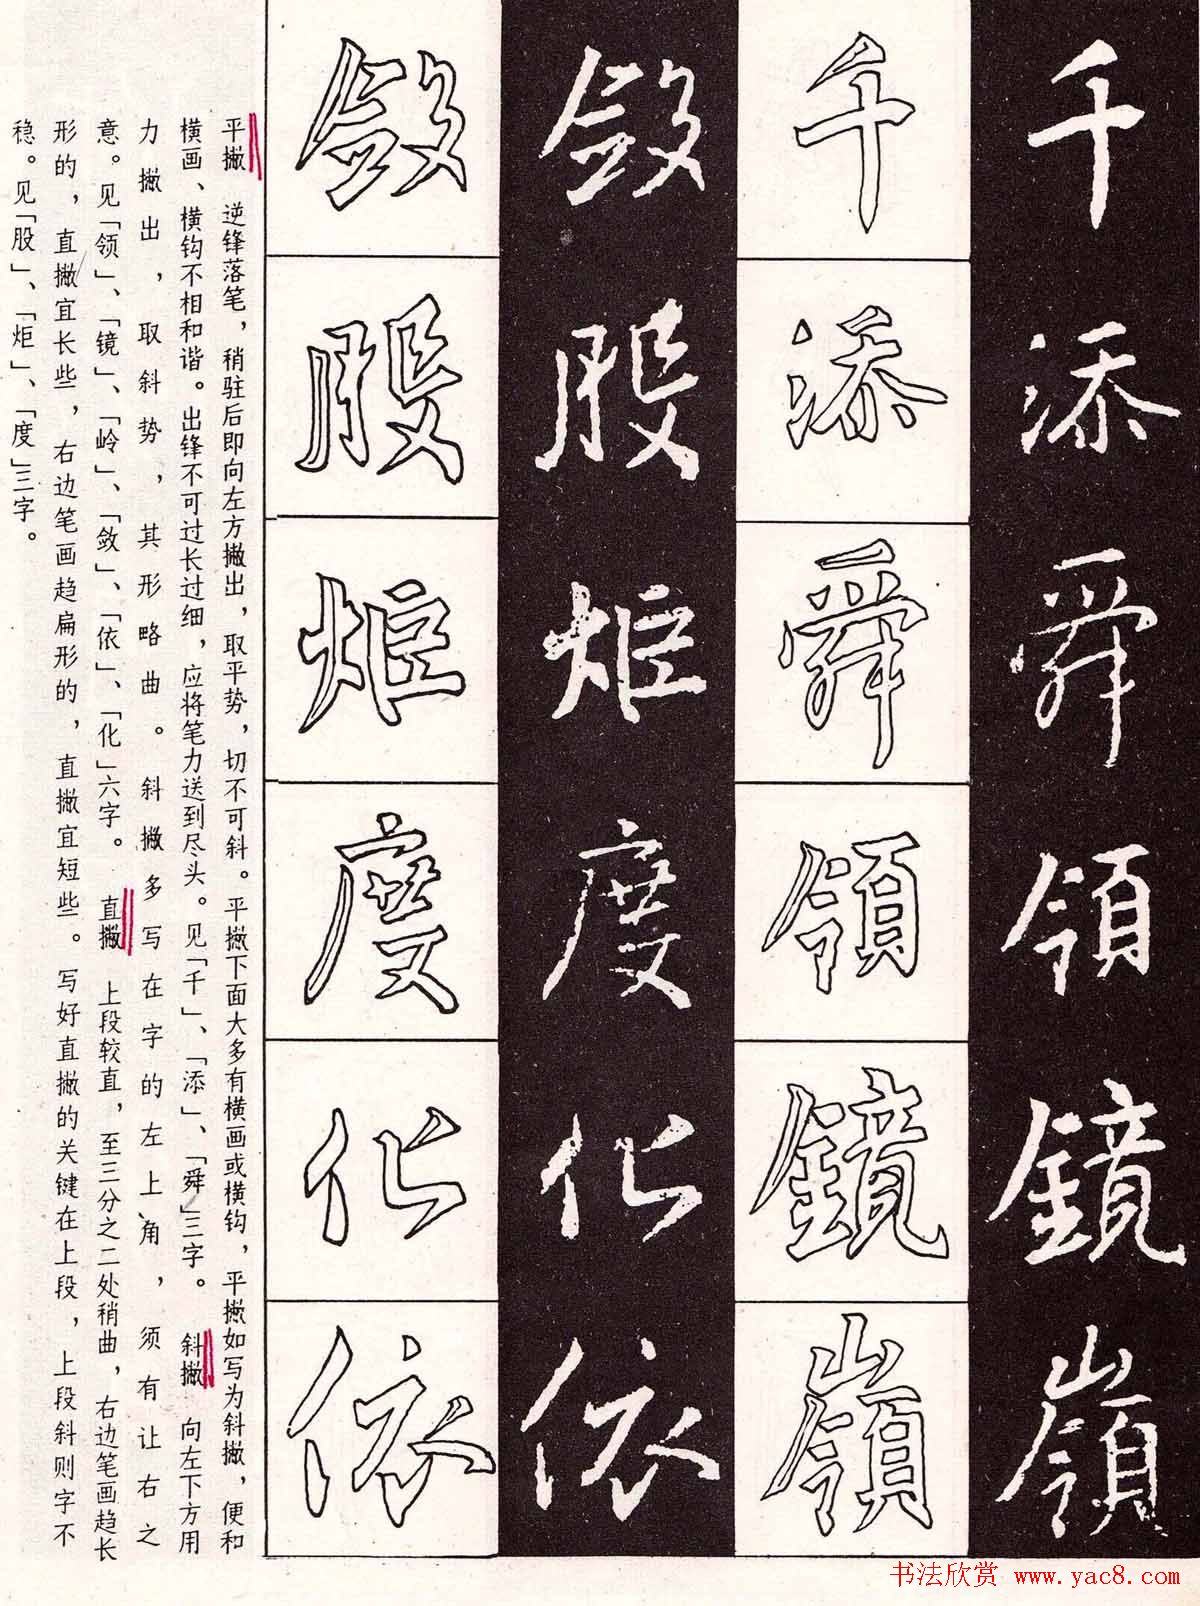 千添舜領鏡嶺
千添舜領鏡嶺
敛股炬度化依
敛股炬度化依
平撇 逆锋落笔，稍驻后即向左方撇出，取平势，切不可斜。平撇下面大多有横画或横钩，平撇如写为斜撇，便和
横画、横钩不相和谐。出锋不可过长过细，应将笔力送到尽头。见「千」、「添」、「舜」三字。 斜撇 向左下方用
力撇出，取斜势，其形略曲。斜撇多写在字的左上角，须有让右之
意。见「领」、「镜」、「岭」、「敛」、「依」、「化」六字。 直撇 上段较直，至三分之二处稍曲，右边笔画趋长
形的，直撇宜长些，右边笔画趋扁形的，直撇宜短些。写好直撇的关键在上段，上段斜则字不
稳。见「股」、「炬」、「度」三字。
书法欣赏 www.yac8.com